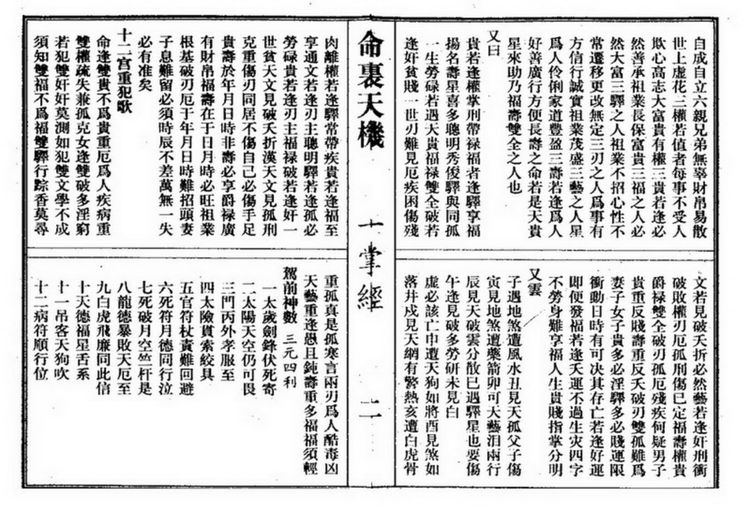 自成自立六親兄弟無辜財帛易散
世上虛花三權若值者每事不受人
欺心高志大富貴有權三貴若逢必
然善承祖業長保富貴三福之人必
然大富三驛之人祖業不招心性不
常遷移更改無定三刃之人爲事有
方信行誠實祖業茂盛三藝之人星
爲人伶俐家道豐盈三壽若逢爲人
好善廣行方便長壽之命若是天貴
星來助乃福壽雙全之人也
又曰
貴若逢權掌刑帶祿福者逢驛享福
揚名壽星喜多聰明秀俊驛與同孤
一生勞碌若遇天貴福祿雙全破若
逢奸貧賤一世刃難見厄疾困傷殘
文若見破夭折必然藝若逢奸刑衝
破敗權刃厄孤刑傷已定福壽權貴
爵祿雙全破刃孤厄殘疾何疑男子
貴重反賤壽重反夭破刃雙孤難爲
妻子女子貴多必淫驛多必賤運限
衝動日時有可決其存亡若逢好運
即便發福若逢夭運不過生灾四字
不勞身難享福人生貴賤指掌分明
又雲
子遇地煞遭風水丑見天孤父子傷
寅見地煞遭藥箭卯可天藝泪兩行
辰見天破雲分散巳遇驛星也要傷
午逢見破多勞研未見白
虛必該亡申遭天狗如將酉見煞如
落井戌見天網有驚熱亥遭白虎骨
命裏天機
一掌經
二
肉離權若逢驛常帶疾貴若逢福至
享通文若逢刃主聰明驛若逢孤必
勞碌貴若逢刃主福祿破若逢奸一
世貧天文見破夭折漢天文見孤刑
克重傷刃同居不傷自己必傷手足
貴壽於年月日時非壽必享爵祿廣
有財帛福壽在于日月時必旺祖業
根基破刃厄于年月日時難招頭妻
子息難留必須時辰不差萬無一失
必有准矣
十二宮重犯歌
命逢雙貴不爲貴重厄爲人疾病重
雙權疏失兼孤克女逢雙破多淫窮
若犯雙奸奸莫測如犯雙文學不成
須知雙福不爲福雙驛行踪香莫尋
重孤真是孤寒言兩刃爲人酷毒凶
天藝重逢愚且鈍壽重多福福須輕
駕前神數 三元四利
一太歲劍鋒伏死寄
二太陽天空仍可畏
三門丙外孝服至
四太險貫索絞具
五官符杖責難回避
六死符月德同行泣
七死破月空竺杆是
八龍德暴敗天厄至
九白虎飛廉同此信
十天德福星舌系
十一吊客天狗吹
十二病符順行位